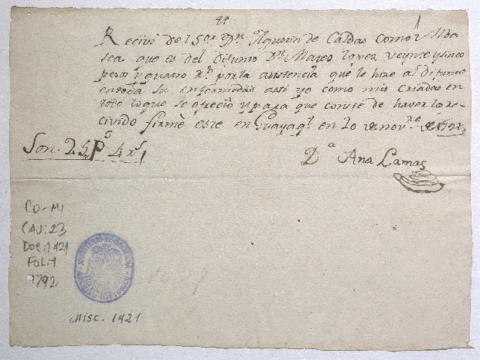 Recivi del Sor Dn Agustin de Caldas como Alba
sea que es del Difunto Dn Marcos Lopes veynte y sinco
pesos y quatro rs por la asistencia que le hise al Difunto
en toda su enfermedad assi yo como mis criadas en
todo lo que se ofrecia y para que conste de haver lo re
civido firmé este en Guayaql en 10 de novre de 1792
Son 25 Ps 4 rs
Da Ana Lamas
CO-MI
CAJ: 23
Doc: 1421
FOL: 1
1792
Misc. 1421
1421